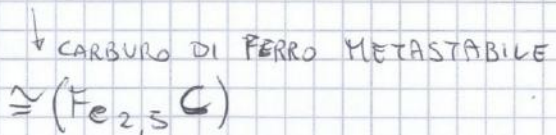 ↓ CARBURO DI FERRO METASTABILE
≅ (Fe2,5 C)